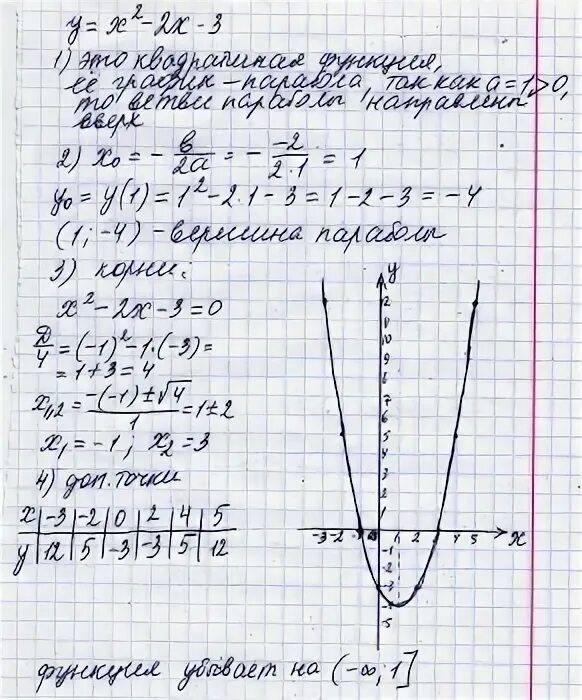 y = x² - 2x - 3
1) это квадратичная функция,
её график - парабола, так как a = 1 > 0,
то ветви параболы направлены
вверх
2) x₀ = - в/2a = - -2/2·1 = 1
y₀ = y(1) = 1² - 2·1 - 3 = 1 - 2 - 3 = -4
(1; -4) - вершина параболы
3) корни:
x² - 2x - 3 = 0
D/4 = (-1)² - 1·(-3) =
= 1 + 3 = 4
x₁,₂ = -(-1) ± √4/1 = 1 ± 2
x₁ = -1; x₂ = 3
4) доп. точки
x | -3 | -2 | 0 | 2 | 4 | 5
y | 12 | 5 | -3 | -3 | 5 | 12
y
10
9
7
6
5
4
3
2
1
-3 -2 0 1 2 4 5 x
-1
-2
-3
-4
-5
функция убывает на (-∞; 1]